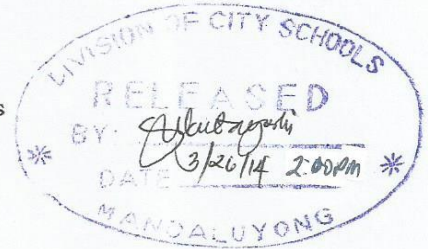 DIVISION OF CITY SCHOOLS
RELEASED
BY:
3/26/14 2:00PM
DATE
MANDALUYONG
s